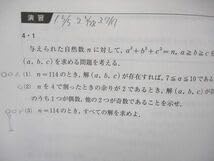 演習
4・1
与えられた自然数 n に対して, a³+b³+c³=n, a≧b≧c を
(a, b, c) を求める問題を考える.
(1) n=114 のとき, 解 (a, b, c) が存在すれば, 7≦a≦10 である
(2) n を 4 で割ったときの余りが 2 であるとき, 解 (a, b, c)
のうち 1 つが偶数, 他の 2 つが奇数であることを示せ.
(3) n=114 のとき, すべての解を求めよ.